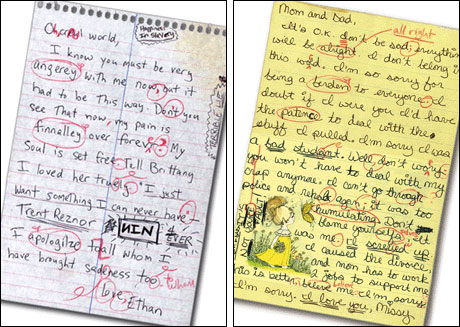 world,
Happiness In Slavery
I know you must be very
angerey with me now, but it
had to be This way. Don't you
see That now, my pain is
finnalley over forever? My
Soul is set free. Tell Brittany
I loved her truely. I just
want something I can never have.
Trent Reznor
NIN
I apologize to all whom I
have brought sadeness too.
love, Ethan
Mom and Dad,
all right
It's O.K. don't be sad, everything
will be alright. I don't belong in
this world. I'm so sorry for
being a berden to everyone. I
doubt if I were you I'd have
the patence to deal with the
stuff I pulled. I'm sorry I was
a bad student. Well, don't worry
you won't have to deal with my
crap anymore. I can't go through
police and rehab again, it was too
humulating. Don't
blame yourself. It
was me. I screwed up
I caused the divorce,
and mom has to work
2 jobs to support me
This is better, believe me. I'm sorry
I'm sorry. I love you, Missy